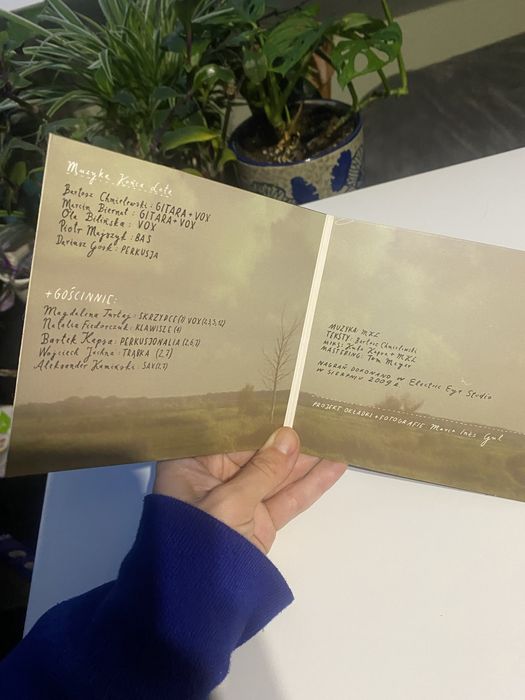 Muzyka Końca Lata
Bartosz Chmielewski: GITARA + VOX
Marcin Biernat: GITARA + VOX
Ola Bilińska: VOX
Piotr Majszyk: BAS
Dariusz Gosk: PERKUSJA
+ GOŚCINNIE:
Magdalena Turłaj: SKRZYPCE VOX
Natalia Fiedorczuk: KLAWISZE
Bartek Kapsa: PERKUSJONALIA (2,6,7)
Wojciech Jachna: TRĄBKA (2,7)
Aleksander Kamiński: SAX (2,7)
MUZYKA: MKL
TEKSTY: Bartosz Chmielewski
MIKS: Kuba Kapsa + MKL
MASTERING: Tom Meyer
NAGRAŃ DOKONANO W Electric Eye Studio
W SIERPNIU 2009 R.
PROJEKT OKŁADKI + FOTOGRAFIE: Maria Inés Gul